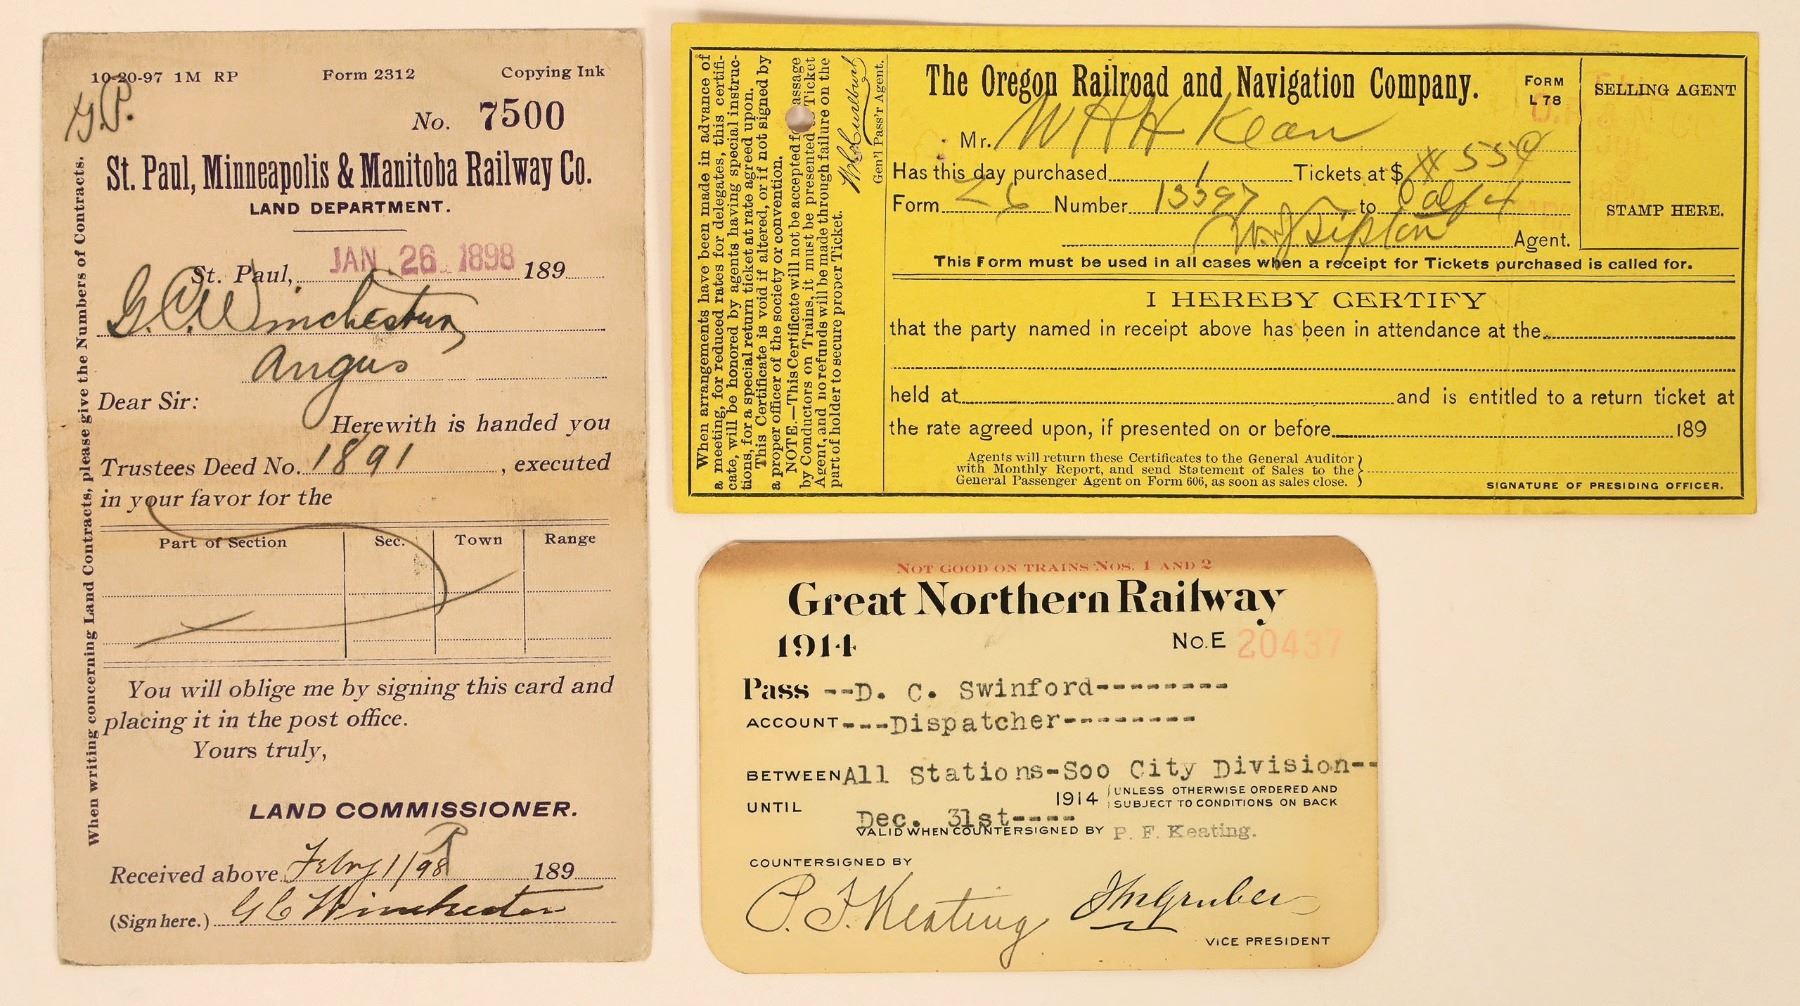 10-20-97 1M RP Form 2312 Copying Ink
G.P.
No. 7500
St. Paul, Minneapolis & Manitoba Railway Co.
LAND DEPARTMENT.
St. Paul, JAN 26 1898 189
G. C. Winchester
Angus
Dear Sir:
Herewith is handed you
Trustees Deed No. 1891, executed
in your favor for the
Part of Section Sec. Town Range
You will oblige me by signing this card and
placing it in the post office.
Yours truly,
LAND COMMISSIONER.
Received above Feby 1/98 189
(Sign here.) G C Winchester
When writing concerning Land Contracts, please give the Numbers of Contracts.
When arrangements have been made in advance of
a meeting, for reduced rates for delegates, this certifi-
cate, will be honored by agents having special instruc-
tions, for a special return ticket at rate agreed upon.
This Certificate is void if altered, or if not signed by
a proper officer of the society or convention.
NOTE.—This Certificate will not be accepted for passage
by Conductors on Trains, it must be presented to Ticket
Agent, and no refunds will be made through failure on the
part of holder to secure proper Ticket.
Gen'l Pass'r Agent.
The Oregon Railroad and Navigation Company.
FORM
L 78
Mr. W H H Kean
Has this day purchased 1 Tickets at $
Form 26 Number 13397 to
W. J. Sipton Agent.
This Form must be used in all cases when a receipt for Tickets purchased is called for.
SELLING AGENT
STAMP HERE.
I HEREBY CERTIFY
that the party named in receipt above has been in attendance at the
held at and is entitled to a return ticket at
the rate agreed upon, if presented on or before 189
Agents will return these Certificates to the General Auditor
with Monthly Report, and send Statement of Sales to the
General Passenger Agent on Form 606, as soon as sales close.
SIGNATURE OF PRESIDING OFFICER.
NOT GOOD ON TRAINS NOS. 1 AND 2
Great Northern Railway
1914 No. E 20437
Pass --D. C. Swinford--------
ACCOUNT ---Dispatcher--------
BETWEEN All Stations-Soo City Division--
UNTIL Dec. 31st---- 1914 UNLESS OTHERWISE ORDERED AND
SUBJECT TO CONDITIONS ON BACK
VALID WHEN COUNTERSIGNED BY P. F. Keating.
COUNTERSIGNED BY
P. F. Keating JMGruber
VICE PRESIDENT